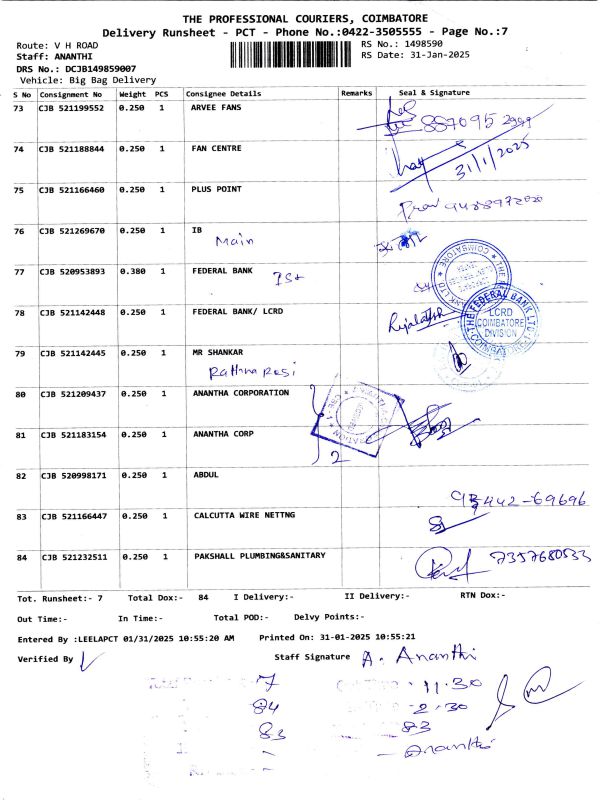 THE PROFESSIONAL COURIERS, COIMBATORE
Delivery Runsheet - PCT - Phone No.:0422-3505555 - Page No.:7
Route: V H ROAD RS No.: 1498590
Staff: ANANTHI RS Date: 31-Jan-2025
DRS No.: DCJB149859007
Vehicle: Big Bag Delivery
S No Consignment No Weight PCS Consignee Details Remarks Seal & Signature
73 CJB 521199552 0.250 1 ARVEE FANS
74 CJB 521188844 0.250 1 FAN CENTRE
31/1/2025
75 CJB 521166460 0.250 1 PLUS POINT
76 CJB 521269670 0.250 1 IB
Main
77 CJB 520953893 0.380 1 FEDERAL BANK
78 CJB 521142448 0.250 1 FEDERAL BANK/ LCRD
THE FEDERAL BANK LTD
LCRD
COIMBATORE
DIVISION
79 CJB 521142445 0.250 1 MR SHANKAR
80 CJB 521209437 0.250 1 ANANTHA CORPORATION
81 CJB 521183154 0.250 1 ANANTHA CORP
2
82 CJB 520998171 0.250 1 ABDUL
83 CJB 521166447 0.250 1 CALCUTTA WIRE NETTNG
84 CJB 521232511 0.250 1 PAKSHALL PLUMBING&SANITARY
7357680533
Tot. Runsheet:- 7 Total Dox:- 84 I Delivery:- II Delivery:- RTN Dox:-
Out Time:- In Time:- Total POD:- Delvy Points:-
Entered By :LEELAPCT 01/31/2025 10:55:20 AM Printed On: 31-01-2025 10:55:21
Verified By Staff Signature A. Ananthi
7 11.30
84 2.30
83 83
Ananthi